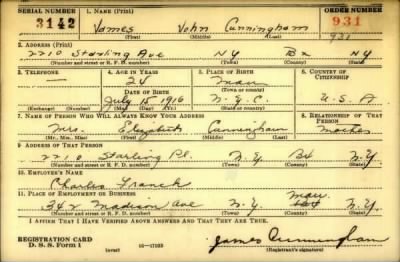 SERIAL NUMBER 1. NAME (Print) ORDER NUMBER
3142 James John Cunningham 931
(First) (Middle) (Last) 931
2. ADDRESS (Print)
2210 Starling Ave NY Bx NY
(Number and street or R. F. D. number) (Town) (County) (State)
3. TELEPHONE 4. AGE IN YEARS 5. PLACE OF BIRTH 6. COUNTRY OF CITIZENSHIP
— 24 Man
DATE OF BIRTH (Town or county)
July 15 1916 N.Y.C. U.S.A
(Exchange) (Number) (Mo.) (Day) (Yr.) (State or country)
7. NAME OF PERSON WHO WILL ALWAYS KNOW YOUR ADDRESS 8. RELATIONSHIP OF THAT PERSON
Mrs. Elizabeth Cunningham Mother
(Mr., Mrs., Miss) (First) (Middle) (Last)
9. ADDRESS OF THAT PERSON
2210 Starling Pl. N.Y. BX N.Y.
(Number and street or R. F. D. number) (Town) (County) (State)
10. EMPLOYER'S NAME
Charles Franck
11. PLACE OF EMPLOYMENT OR BUSINESS Man
342 Madison Ave N.Y. N.Y.
(Number and street or R. F. D. number) (Town) (County) (State)
I AFFIRM THAT I HAVE VERIFIED ABOVE ANSWERS AND THAT THEY ARE TRUE.
REGISTRATION CARD
D. S. S. Form 1 (over) 16—17105 James Cunningham
(Registrant's signature)